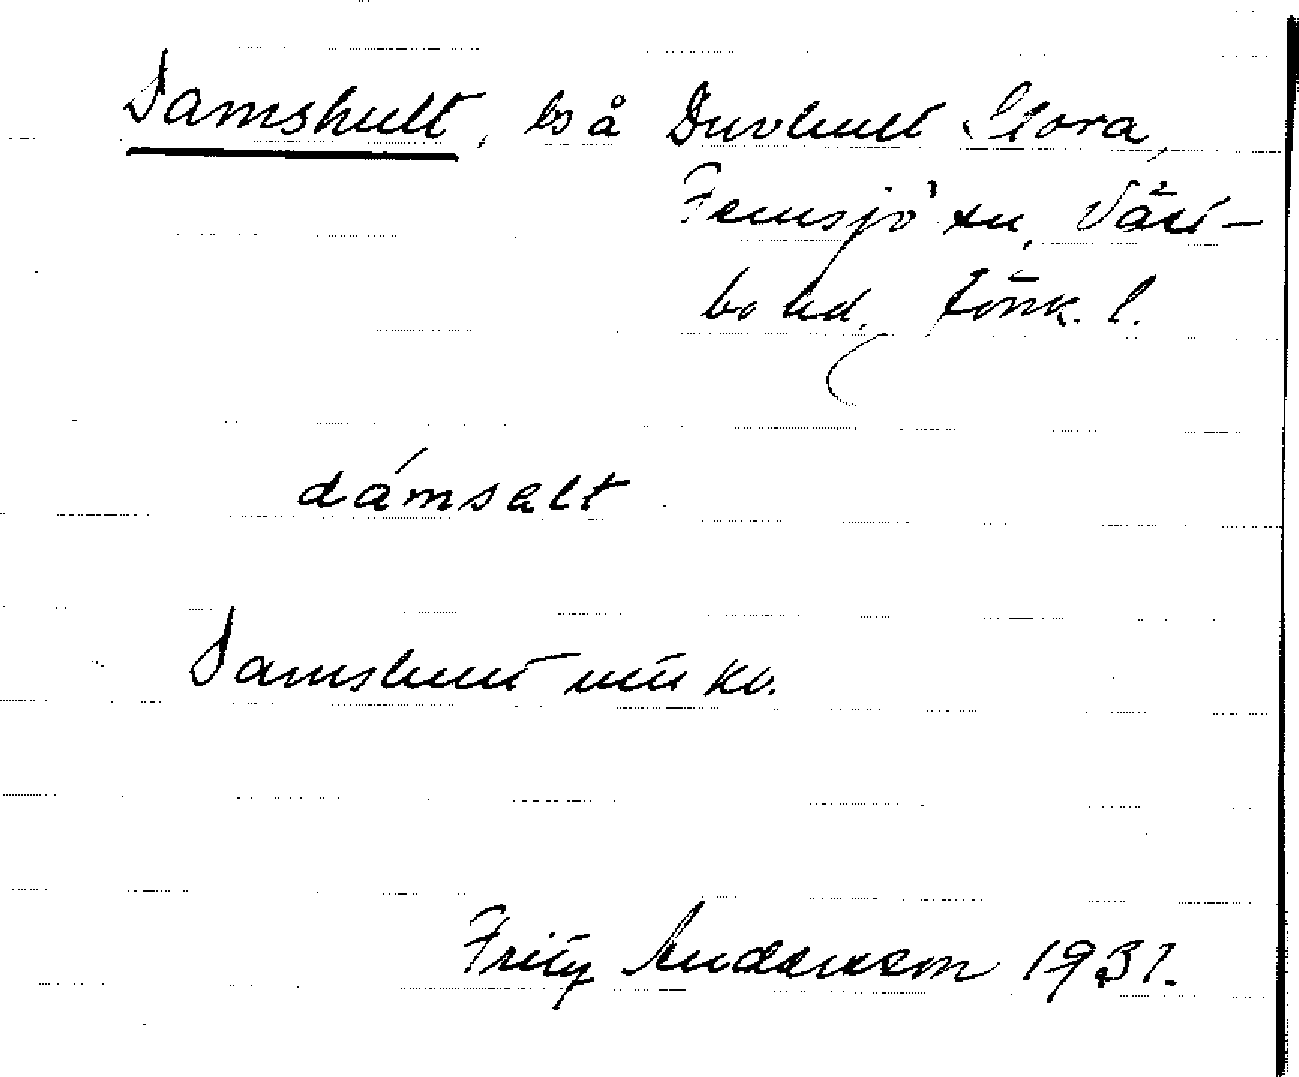 Damshult, bs å Duvhult Stora,
Femsjö sn, Väst-
bo hd, Jönk. l.
dámsalt
Damshult
Fritz Andersson 1931.